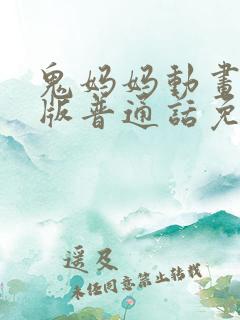 鬼妈妈動畫
版普通話免
遥及
未经同意禁止转载